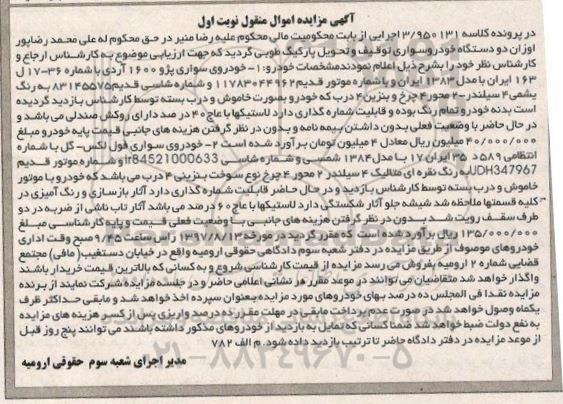 آگهی مزایده اموال منقول نوبت اول
در پرونده کلاسه 3/950131 اجرایی از بابت محکومیت مالی محکوم علیه رضا منیر در حق محکوم له علی محمد رضاپور
اوزان دو دستگاه خودروسواری توقیف و تحویل پارکینگ طویی گردید که جهت ارزیابی موضوع به کارشناس ارجاع و
کارشناس نظر خود را بشرح ذیل اعلام نمودندمشخصات خودرو: 1- خودروی سواری پژو 1600 آردی با شماره 36-17 ل
163 ایران با مدل 1383 ایران و با شماره موتور قدیم 11783044962 و شماره شاسی قدیم 83145575 به رنگ
یشمی 4 سیلندر-2 محور 4 چرخ و بنزین 4 درب که خودرو بصورت خاموش و درب بسته توسط کارشناس بازدید گردیده
است بدنه خودرو تمام رنگ بوده و قابلیت شماره گذاری دارد لاستیکها با عاج 40 در صد دارای روکش صندلی می باشد و
در حال حاضر با وضعیت فعلی بدون داشتن بیمه نامه و بدون در نظر گرفتن هزینه های جانبی قیمت پایه خودرو مبلغ
40/000/000 میلیون ریال معادل 4 میلیون تومان برآورد شده است 2- خودروی سواری فول لکس- گل با شماره
انتظامی 589 د 35 ایران 17 با مدل 1384 شمسی و شماره شاسی ir84521000633 و شماره موتور قدیم
UDH347967 به رنگ نقره ای متالیک 4 سیلندر 2 محور 4 چرخ نوع سوخت بنزینی 4 درب می باشد که خودرو با موتور
خاموش و درب بسته توسط کارشناس بازدید و در حال حاضر قابلیت شماره گذاری دارد آثار بازسازی و رنگ آمیزی در
کلیه قسمتها ملاحظه شد شیشه جلو آثار شکستگی دارد لاستیکها با عاج 60 درصد می باشد آثار تاب ناشی از ضربه در دو
طرف سقف رویت شد بدون در نظر گرفتن هزینه های جانبی با وضعیت فعلی قیمت و پایه کارشناسی مبلغ
135/000/000 ریال برآورد شده است که مقرر گردید در مورخه 1397/8/13 راس ساعت 9/45 صبح وقت اداری
خودروهای موصوف از طریق مزایده در دفتر شعبه سوم دادگاهی حقوقی ارومیه واقع در خیابان دستغیب (مافی) مجتمع
قضایی شماره 2 ارومیه بفروش می رسد مزایده از قیمت کارشناسی شروع و به کسانی که بالاترین قیمت خریدار باشند
واگذار خواهد شد متقاضیان می توانند در موعد مقرر در نشانی اعلامی حاضر و در جلسه مزایده شرکت نمایند از برنده
مزایده نقدا فی المجلس ده درصد بهای خودروهای مورد مزایده بعنوان سپرده اخذ خواهد شد و مابقی حداکثر ظرف
یکماه وصول خواهد شد در صورت عدم پرداخت مابقی در مهلت مقرر ده درصد واریزی پس از کسر هزینه های مزایده
به نفع دولت ضبط خواهد شد ضمنا کسانی که تمایل به بازدید از خودروهای مذکور داشته باشند می توانند پنج روز قبل
از موعد مزایده در دفتر دادگاه حاضر تا ترتیب بازدید داده شود. م الف 782
مدیر اجرای شعبه سوم حقوقی ارومیه
021-88349670-5